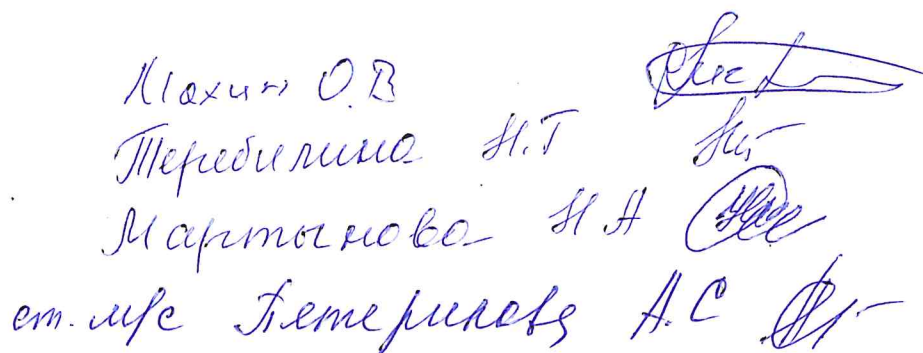 Махин О.В
Теребилина Н.Т
Мартынова Н А
ст. м/с Пятерикова А.С